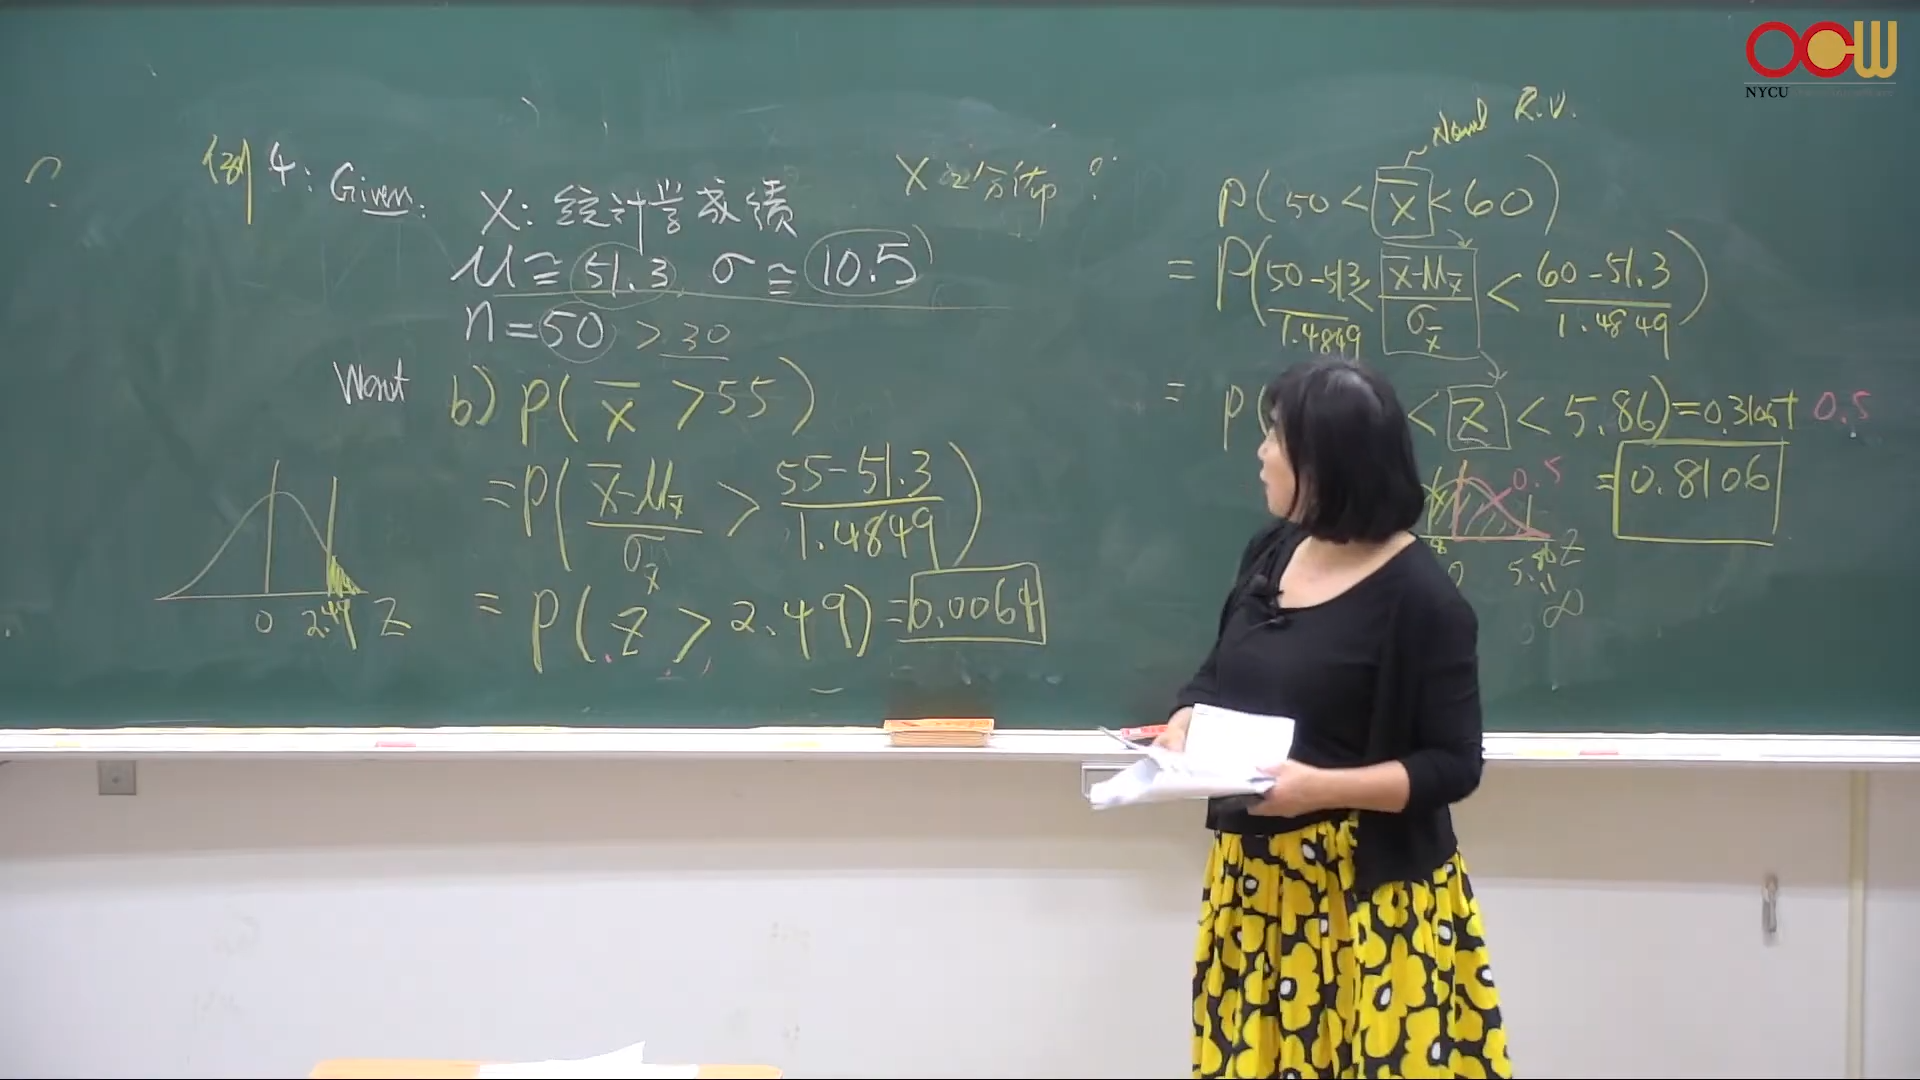 ?
例 4: Given:
X: 統计学成績
μ ≅ 51.3 σ ≅ 10.5
n = 50 > 30
Want b) P( x̄ > 55 )
= P( (x̄ - μx̄) / σx̄ > (55 - 51.3) / 1.4849 )
= P( Z > 2.49 ) = 0.0064
0 2.49 Z
X ?
R.V.
P( 50 < x̄ < 60 )
= P( (50 - 51.3) / 1.4849 < (x̄ - μx̄) / σx̄ < (60 - 51.3) / 1.4849 )
= P( < Z < 5.86 ) = 0.3106 + 0.5
= 0.8106
0.5
0 5.86 Z
∞
OCW
NYCU